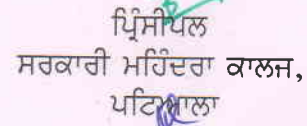 ਪ੍ਰਿੰਸੀਪਲ
ਸਰਕਾਰੀ ਮਹਿੰਦਰਾ ਕਾਲਜ,
ਪਟਿਆਲਾ